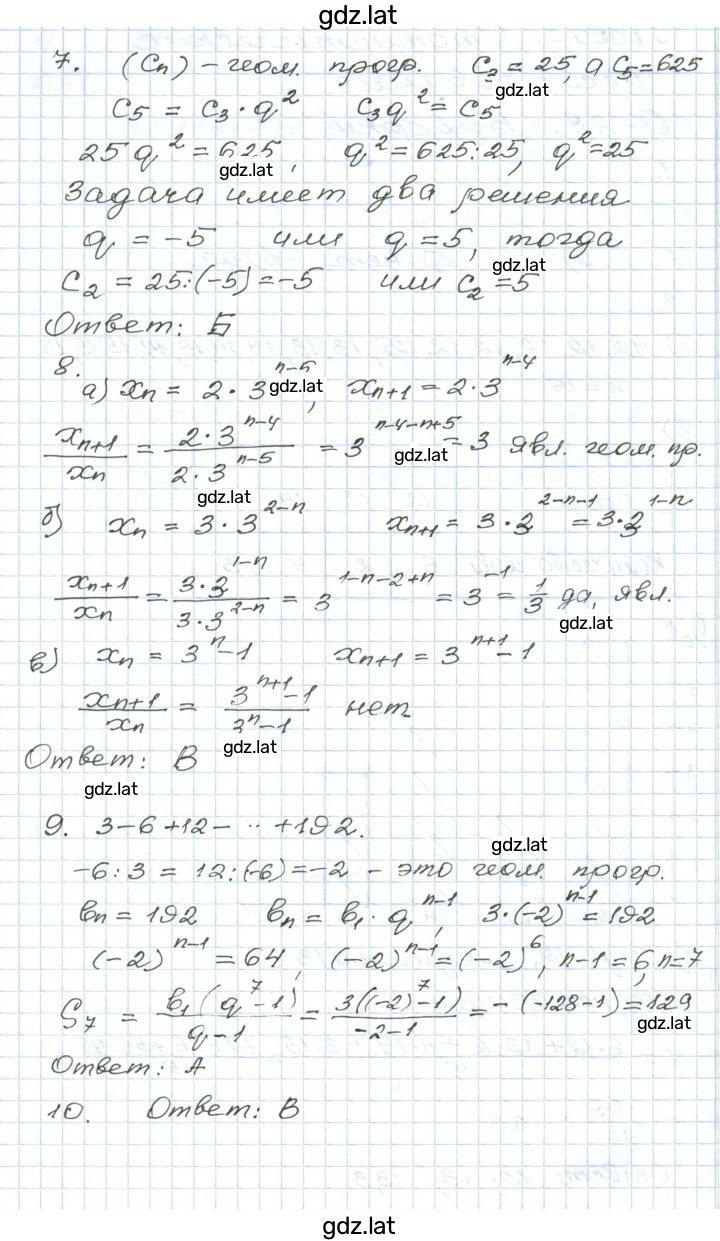 gdz.lat
7. (Cₙ) – геом. прогр. C₃ = 25, а C₅ = 625
gdz.lat
C₅ = C₃ · q² C₃q² = C₅
25q² = 625, q² = 625:25, q² = 25
gdz.lat
Задача имеет два решения
q = –5 или q = 5, тогда
gdz.lat
C₂ = 25:(–5) = –5 или C₂ = 5
Ответ: Б
8.
а) xₙ = 2·3ⁿ⁻⁵, xₙ₊₁ = 2·3ⁿ⁻⁴
gdz.lat
xₙ₊₁/xₙ = 2·3ⁿ⁻⁴/2·3ⁿ⁻⁵ = 3ⁿ⁻⁴⁻ⁿ⁺⁵ = 3 явл. геом. пр.
gdz.lat
gdz.lat
б) xₙ = 3·3²⁻ⁿ xₙ₊₁ = 3·3²⁻ⁿ⁻¹ = 3·3¹⁻ⁿ
xₙ₊₁/xₙ = 3·3¹⁻ⁿ/3·3²⁻ⁿ = 3¹⁻ⁿ⁻²⁺ⁿ = 3⁻¹ = 1/3 да, явл.
gdz.lat
в) xₙ = 3ⁿ–1 xₙ₊₁ = 3ⁿ⁺¹–1
xₙ₊₁/xₙ = 3ⁿ⁺¹–1/3ⁿ–1 нет
gdz.lat
Ответ: В
gdz.lat
9. 3–6+12– ·· +192.
gdz.lat
–6:3 = 12:(–6) = –2 – это геом. прогр.
bₙ = 192 bₙ = b₁·qⁿ⁻¹, 3·(–2)ⁿ⁻¹ = 192
(–2)ⁿ⁻¹ = 64, (–2)ⁿ⁻¹ = (–2)⁶, n–1 = 6, n=7
S₇ = b₁(q⁷–1)/q–1 = 3((–2)⁷–1)/–2–1 = –(–128–1) = 129
gdz.lat
Ответ: А
10. Ответ: В
gdz.lat